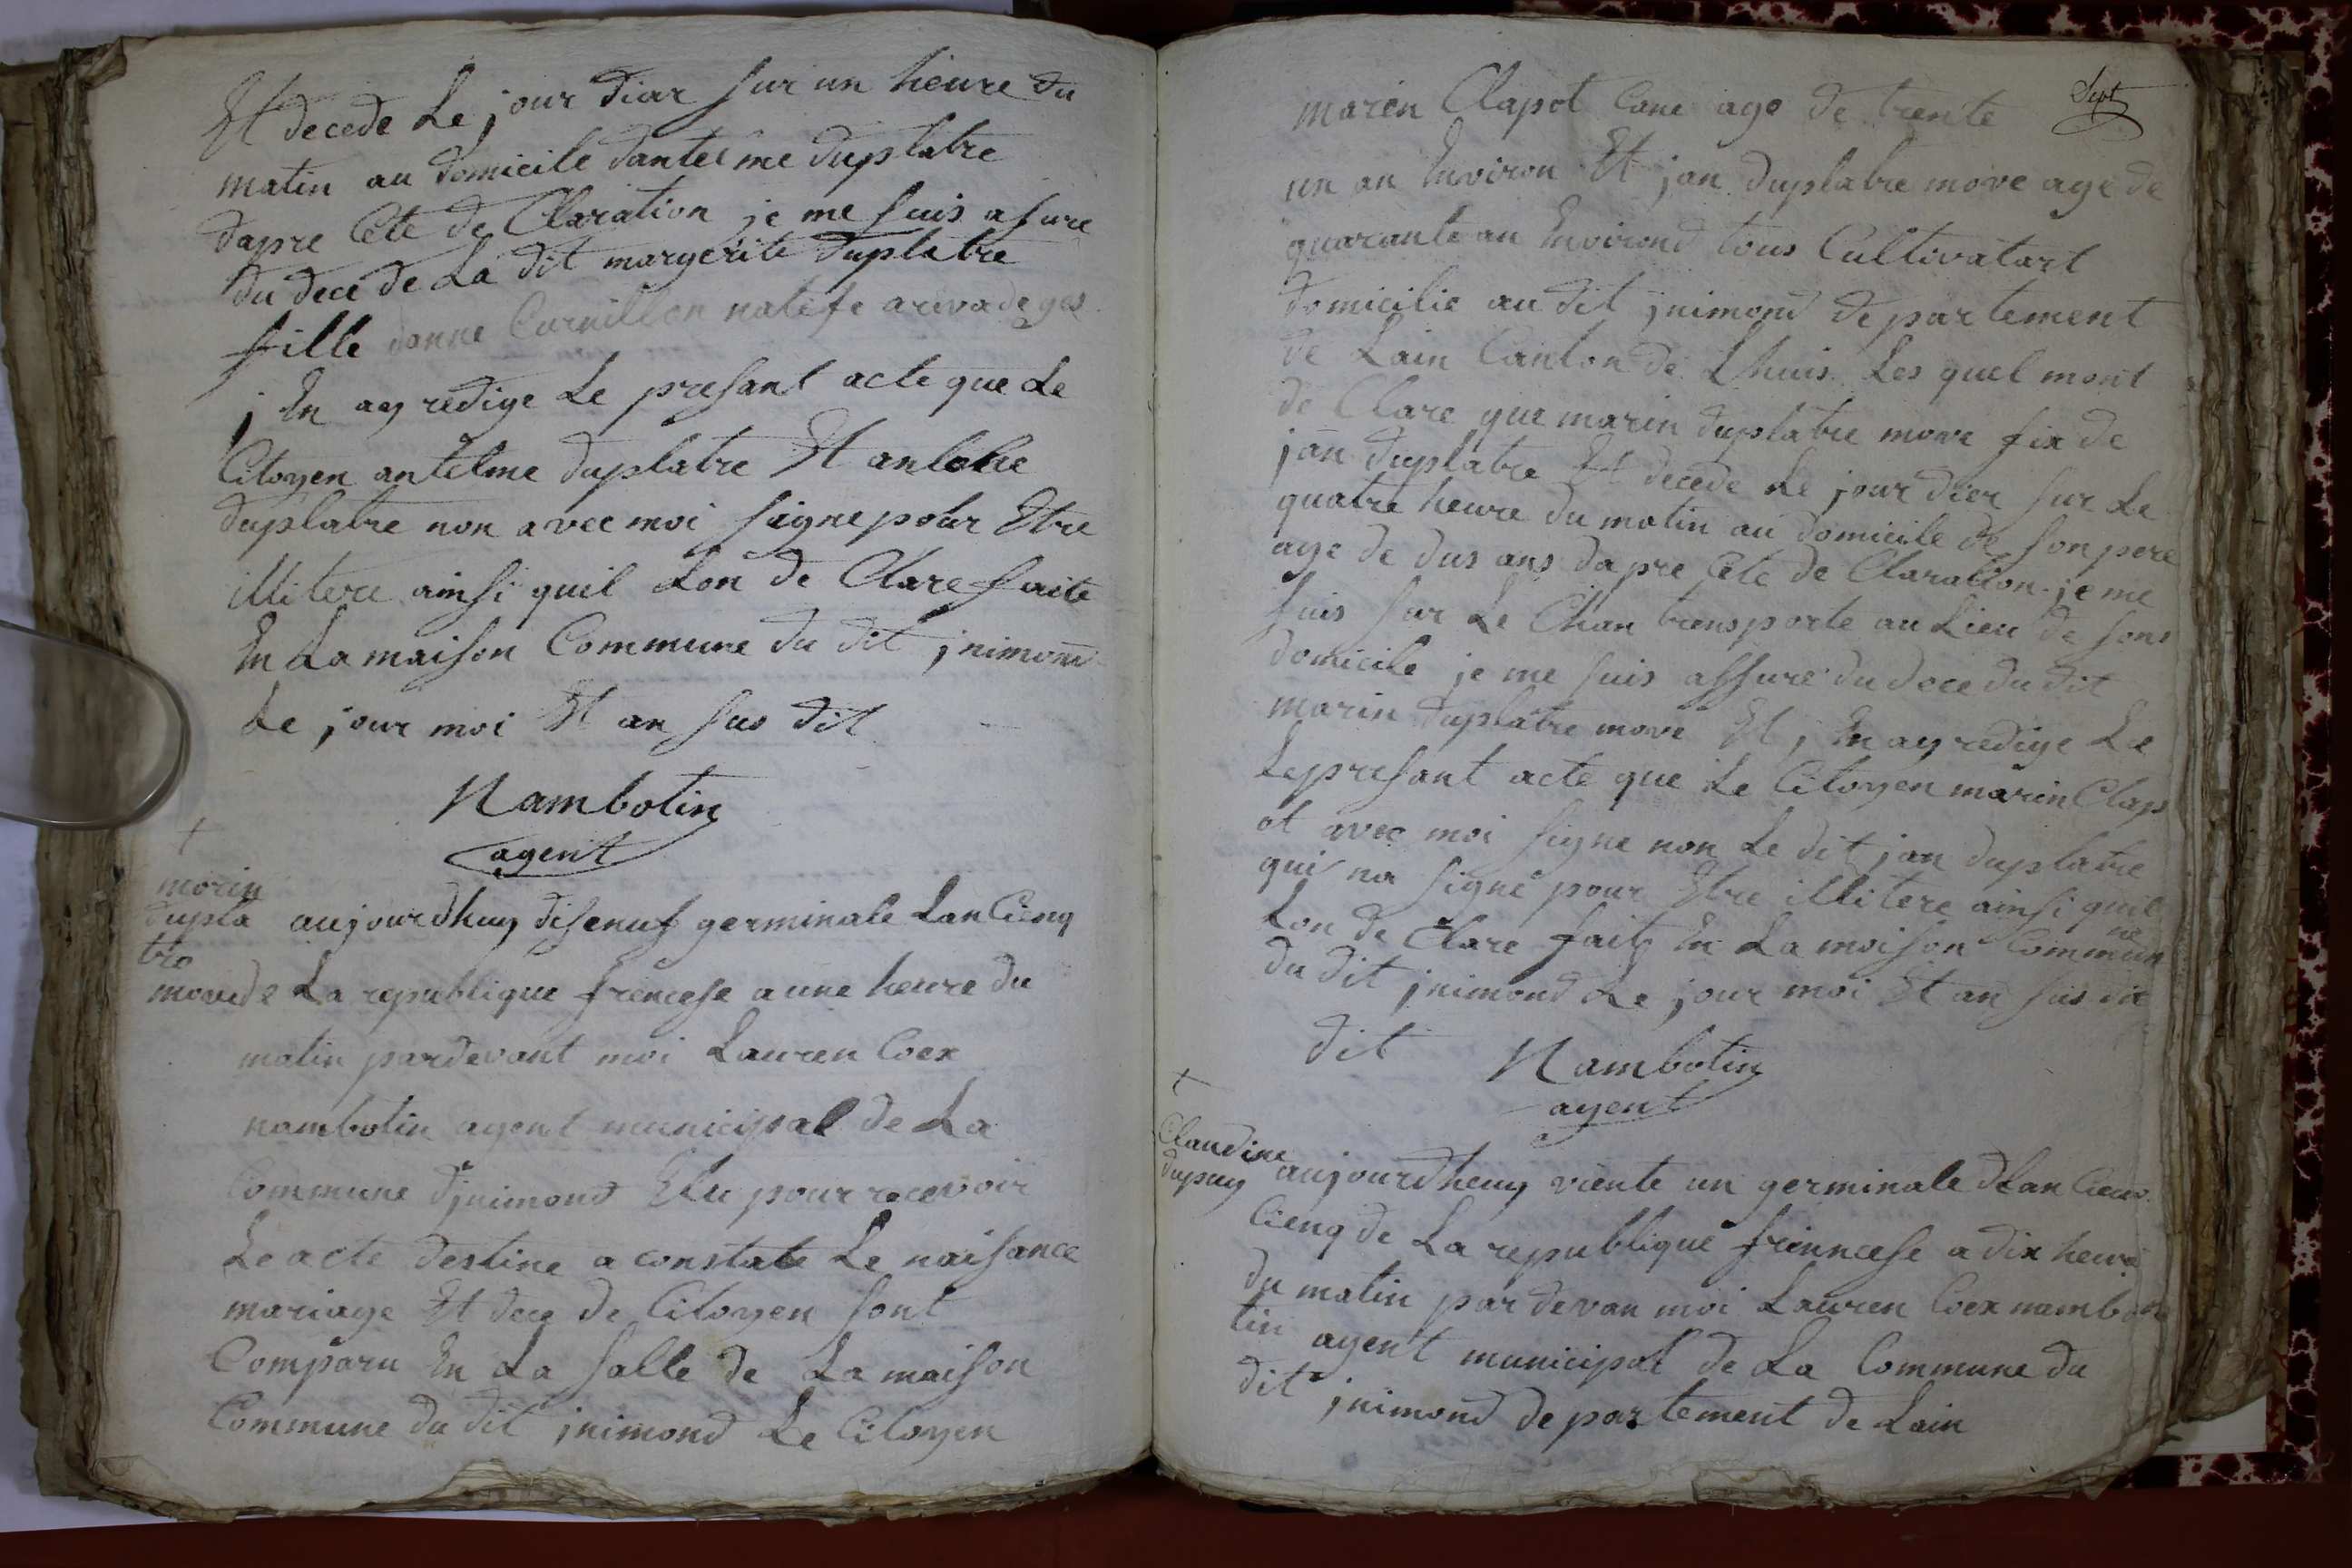 Et decede Le jour diar sur un heure du
matin au domicile dantelme duplatre
dapre Cete de Claration je me suis asure
du dece de La dit margerite duplatre
fille donne Curnillon natefe
j En ay redige Le presant acte que Le
Citoyen antelme duplatre Et
duplatre non avec moi signe pour Etre
illitere ainsi quil Lon de Clare faite
En La maison Commune du dit jnimond
Le jour moi Et an sus dit
Nambotin
agent
morin
dupla
tre
move
aujourdhuy disenuf germinale Lan Cienq
de La republique francese a une heure du
matin pardevant moi Lauren Coex
nambotin agent municipal de La
Commune djnimond Elu pour recevoir
Le acte destine a constate Le naisance
mariage Et dece de Citoyen sont
Comparu En La salle de La maison
Commune du dit jnimond Le Citoyen
Sept
marin Clapot Cane age de trente
un an Environ Et jan duplatre move age de
quarante an Environd tous Cultivatart
domicilie au dit jnimond departement
de Lain Canton de Lhuis Les quel mont
de Clare que marin duplatre move fix de
jan duplatre Et decede Le jour dier sur Le
quatre heure du matin au domicile de son pere
age de dus ans dapre Cete de Claration je me
suis sur Le Chan transporte au Lieu de sons
domicile je me suis assure du dece du dit
marin duplatre move Et j En ay redige Le
Le presant acte que Le Citoyen marin Clap
ot avec moi signe non Le dit jan duplatre
qui na signe pour Etre illitere ainsi quil
Lon de Clare fait En La moison Commun
ne
du dit jnimond Le jour moi Et an sus dit
dit
Nambotin
agent
Claudine
dupuy
aujourdheuy viente un germinale Lan
Cienq de La republique frinncese a dix heure
du matin par devan moi Lauren Coex nambo
tin agent municipal de La Commune du
dit jnimond departement de Lain